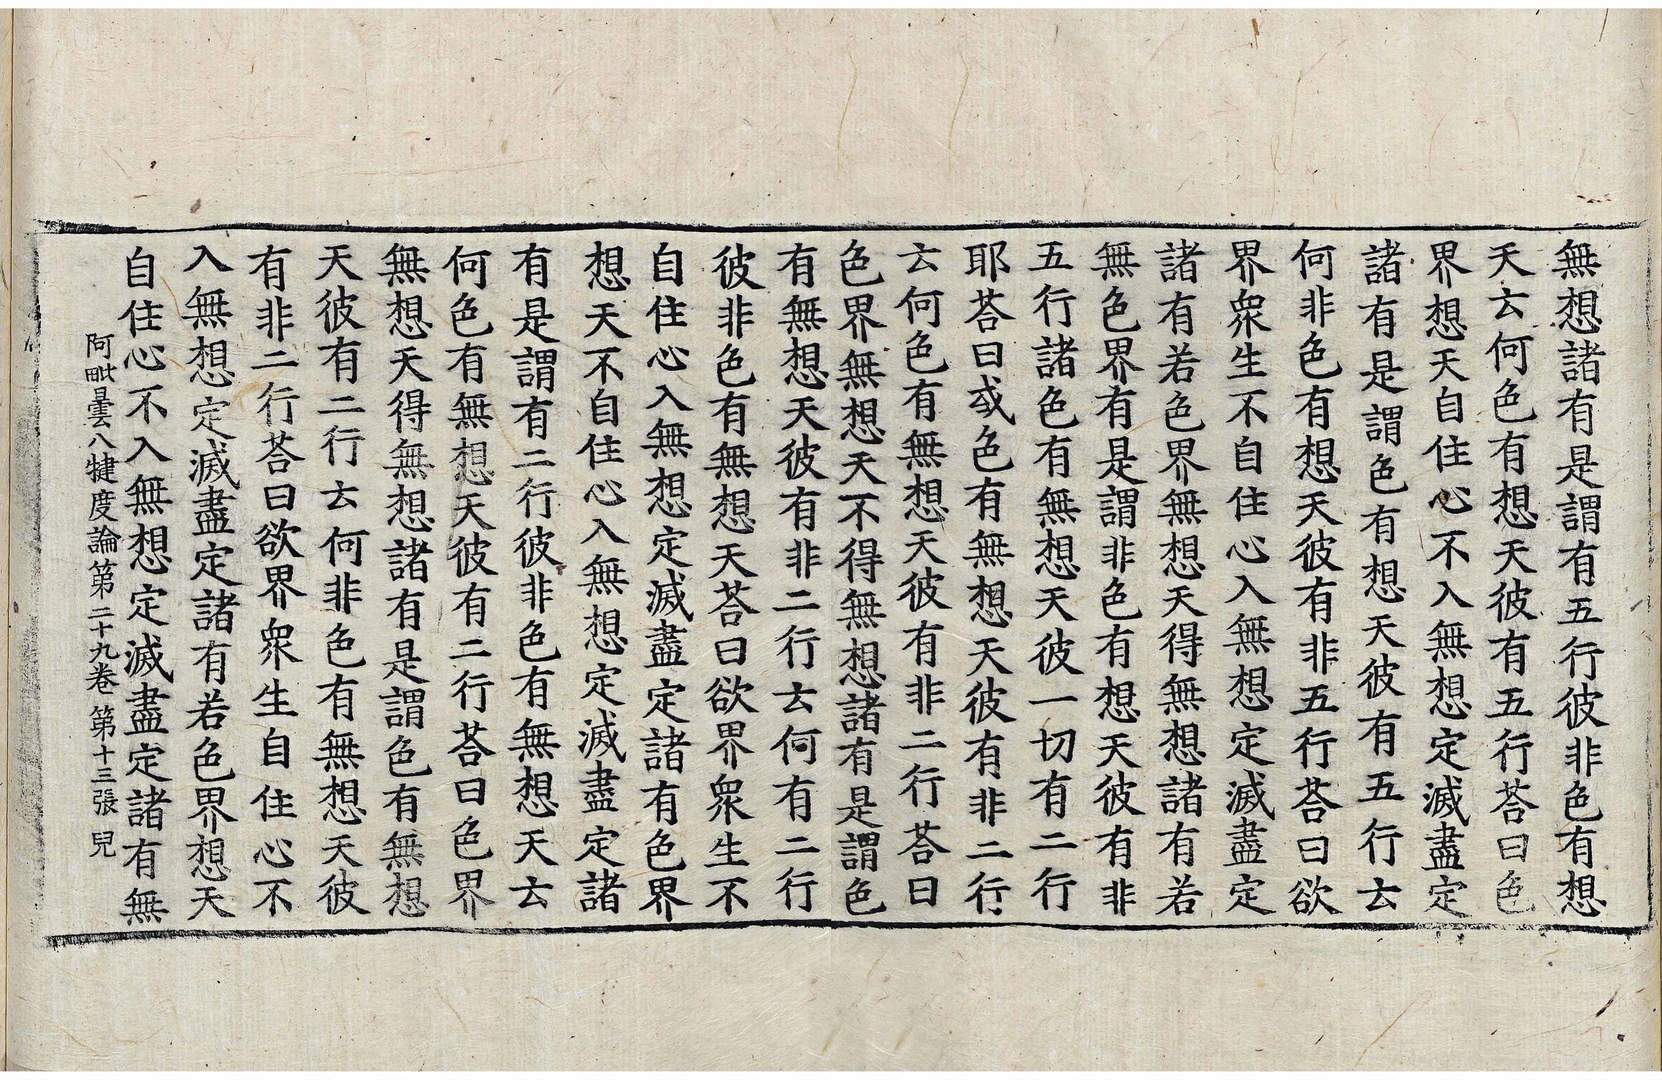 無想諸有是謂有五行彼非色有想
天云何色有想天彼有五行荅曰色
界想天自住心不入無想定滅盡定
諸有是謂色有想天彼有五行云
何非色有想天彼有非五行荅曰欲
界衆生不自住心入無想定滅盡定
諸有若色界無想天得無想諸有若
無色界有是謂非色有想天彼有非
五行諸色有無想天彼一切有二行
耶荅曰或色有無想天彼有非二行
云何色有無想天彼有非二行荅曰
色界無想天不得無想諸有是謂色
有無想天彼有非二行云何有二行
彼非色有無想天荅曰欲界衆生不
自住心入無想定滅盡定諸有色界
想天不自住心入無想定滅盡定諸
有是謂有二行彼非色有無想天云
何色有無想天彼有二行荅曰色界
無想天得無想諸有是謂色有無想
天彼有二行云何非色有無想天彼
有非二行荅曰欲界衆生自住心不
入無想定滅盡定諸有若色界想天
自住心不入無想定滅盡定諸有無
阿毗曇八犍度論第二十九卷 第十三張 兒